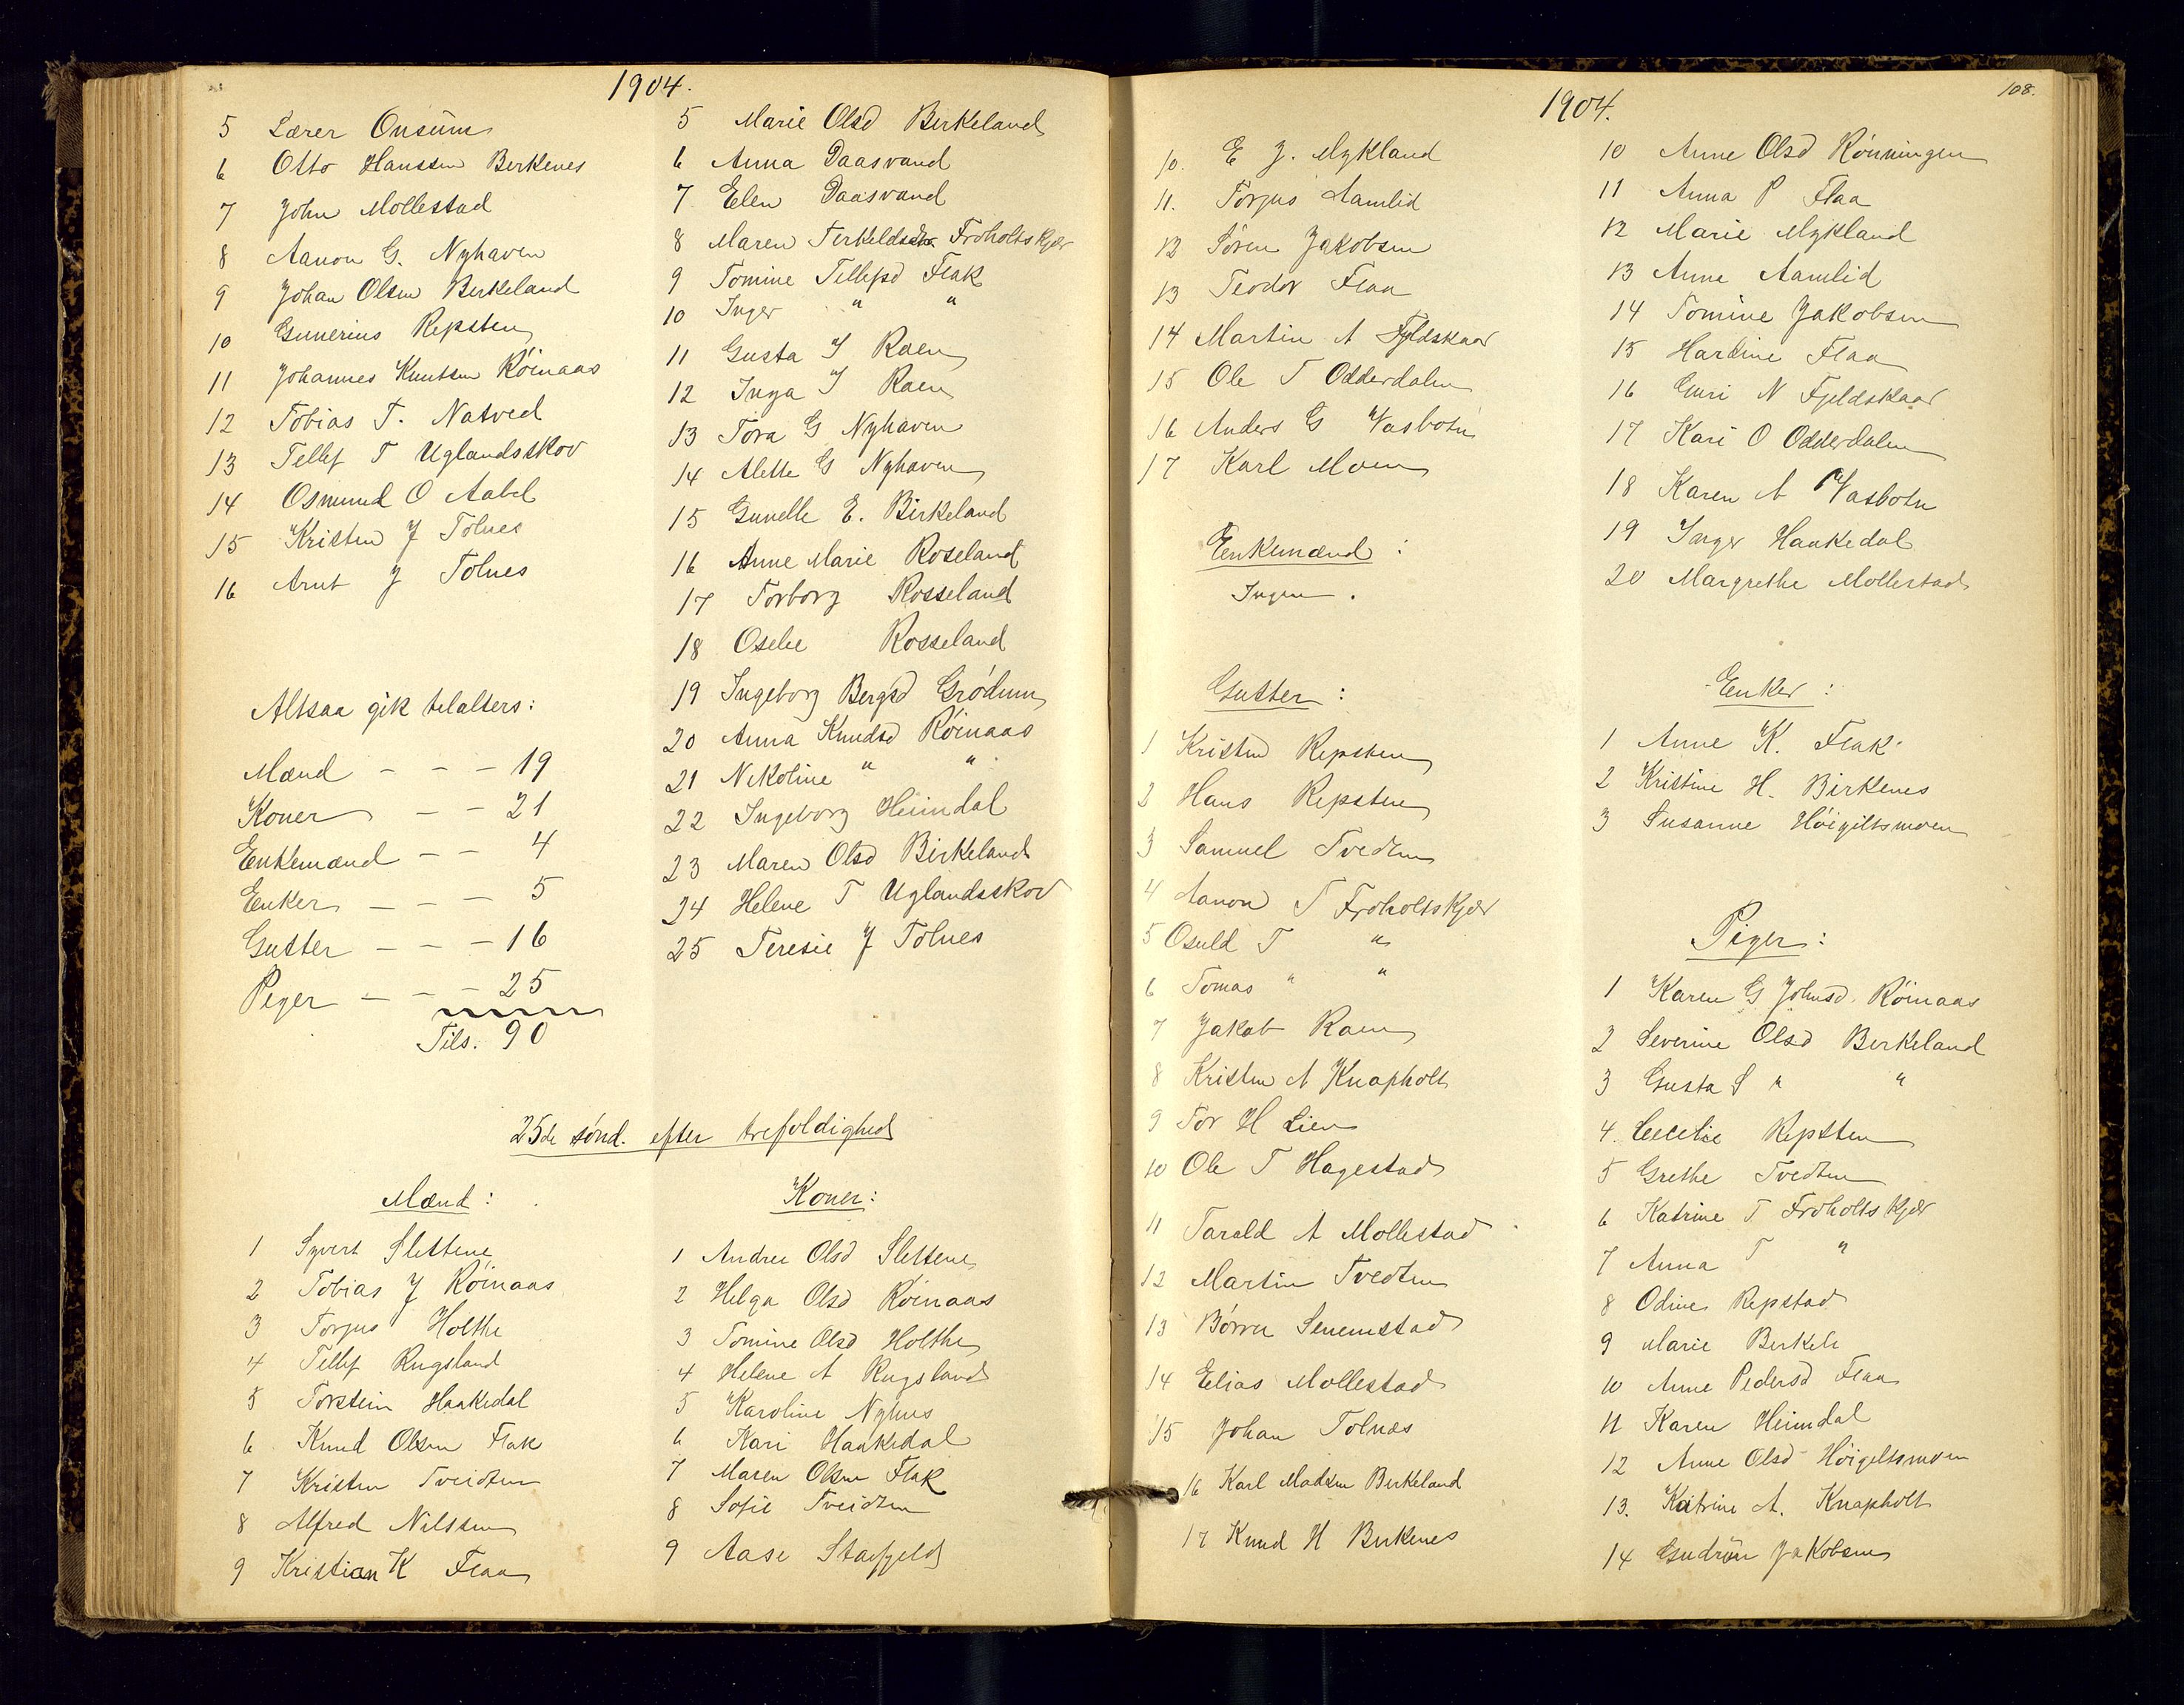 1904.
5 Lærer Onsum
6 Otto Hanssen Berkenes
7 John Mollestad
8 Aanon G. Nyhaven
9 Johan Olsen Berkeland
10 Gunerius Repsten
11 Johannes Knutsen Röinaas
12 Tobias T. Natved
13 Tellef T Uglandsskov
14 Osmund O Aabel
15 Kristen J Tolnes
16 Arnt J Tolnes
Altsaa gik tilalters:
Mænd - - - 19
Koner - - 21
Enkemænd - - 4
Enker - - - 5
Gutter - - - 16
Piger - - - 25
Tils. 90
5 Marie Olsd Berkeland
6 Anna Daasvand
7 Elen Daasvand
8 Maren Terkelds Froholtskjær
9 Tomine Tellefsd Flak
10 Inger " "
11 Gusta J Raen
12 Inga J Raen
13 Tora G Nyhaven
14 Alette G Nyhaven
15 Gunelle E. Birkeland
16 Anne Marie Roseland
17 Torborg Rosseland
18 Oselie Rosseland
19 Ingeborg Bergsd Grödum
20 Anna Knudsd Röinaas
21 Nikoline " "
22 Ingeborg Heimdal
23 Maren Olsd Birkeland
24 Helene T Uglandsskov
25 Teresie J Tolnes
25de sönd. efter trefoldighed
Mænd:
1 Syvert Slettene
2 Tobias J Röinaas
3 Torjus Holthe
4 Tellef Rugsland
5 Torstein Haakedal
6 Knud Olsen Flak
7 Kristen Tveidten
8 Alfred Nilssen
9 Kristian K Flaa
Koner:
1 Andree Olsd Slettene
2 Helga Olsd Röinaas
3 Tomine Olsd Holthe
4 Helene A Rugsland
5 Karoline Nyhus
6 Kari Haakedal
7 Maren Olsen Flak
8 Sofie Tveidten
9 Aase Stasfjeld
108.
1904.
10. E J. Mykland
11. Torjus Aamlid
12 Sören Jakobsen
13 Teodor Flaa
14 Martin A Fjeldskaar
15 Ole T Odderdalen
16 Anders G Vasbotn
17 Karl Moen
Enkemænd:
Ingen.
Gutter:
1 Kristen Repsten
2 Hans Repsten
3 Samuel Tvedten
4 Aanon T Froholtskjær
5 Osuld T "
6 Tomas " "
7 Jakob Raen
8 Kristen A Knapholt
9 Tor H Lien
10 Ole T Hagestad
11 Tarald A Mollestad
12 Martin Tvedten
13 Börre Senumstad
14 Elias Mollestad
15 Johan Tolnæs
16 Karl Madsen Birkeland
17 Knud H Birkenes
10 Anne Olsd Rönningen
11 Anna P Flaa
12 Marie Mykland
13 Anne Aamlid
14 Tomine Jakobsen
15 Hardine Flaa
16 Guri N Fjeldskaar
17 Kari O Odderdalen
18 Karen A Vasbotn
19 Inger Haakedal
20 Margrethe Mollestad
Enker:
1 Anne K. Flak
2 Kristine H. Birkenes
3 Susanne Höigiltsmoen
Piger:
1 Karen G Johnsd. Röinaas
2 Severine Olsd Berkeland
3 Gusta S " "
4. Cecelie Repsten
5 Grethe Tvedten
6 Katrine T Froholtskjær
7 Anna T "
8 Odine Repstad
9 Marie Berkeli
10 Anne Pedersd Flaa
11 Karen Heimdal
12 Anne Olsd Höigeltsmoen
13. Katrine A. Knapholt
14 Gudrun Jakobsen